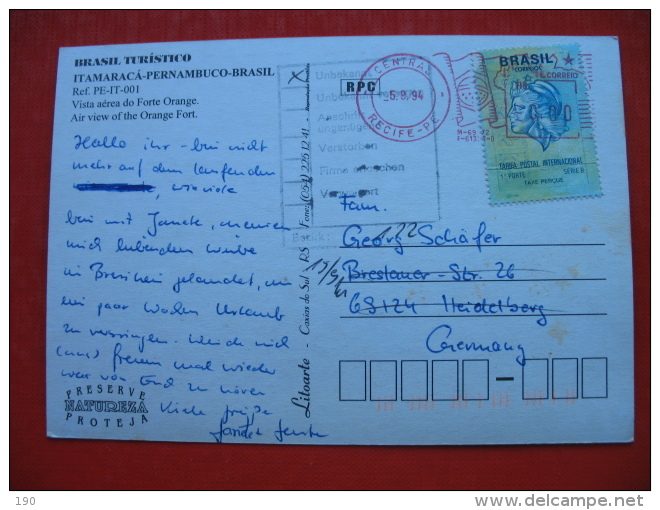 BRASIL TURÍSTICO
ITAMARACÁ-PERNAMBUCO-BRASIL
Ref. PE-IT-001
Vista aérea do Forte Orange.
Air view of the Orange Fort.
Hallo ihr - bin nicht
mehr auf dem laufenden
, wieviele
bin mit
mich liebenden Weibe
in Brasilien gelandet, um
ein paar Wochen Urlaub
zu verbringen. Würde mich
(uns) freuen mal wieder
was von Euch zu hören
Viele Grüße
PRESERVE
NATUREZA
PROTEJA
Litoarte - Caxias do Sul - RS - Fone: (054) 225.12.41
Unbekannt
Unbekannt
Anschrift
ungenügend
Verstorben
Firma erloschen
Bezirk
RPC
CENTRAL
-5.9.94
RECIFE-PE
BRASIL
CORREIOS
CORREIO
TARIFA POSTAL INTERNACIONAL
1º PORTE SÉRIE B
TAXE PERÇUE
Fam.
Georg Schäfer
Breslauer-Str. 26
69124 Heidelberg
Germany
190
www.delcampe.net